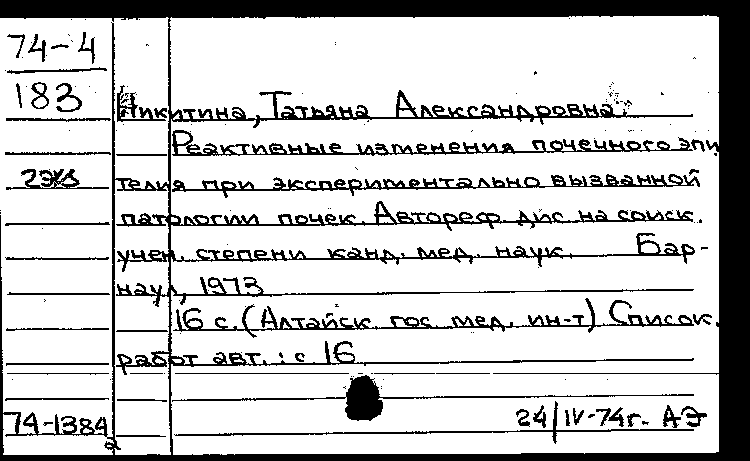 74-4
183
Никитина, Татьяна Александровна.
Реактивные изменения почечного эпи
2экз
телия при экспериментально вызванной
патологии почек. Автореф. дис. на соиск.
учен. степени канд. мед. наук. Бар-
наул, 1973
16 с. (Алтайск. гос. мед. ин-т) Список.
работ авт.: с 16
74-1384а
24/IV-74г. АЭ